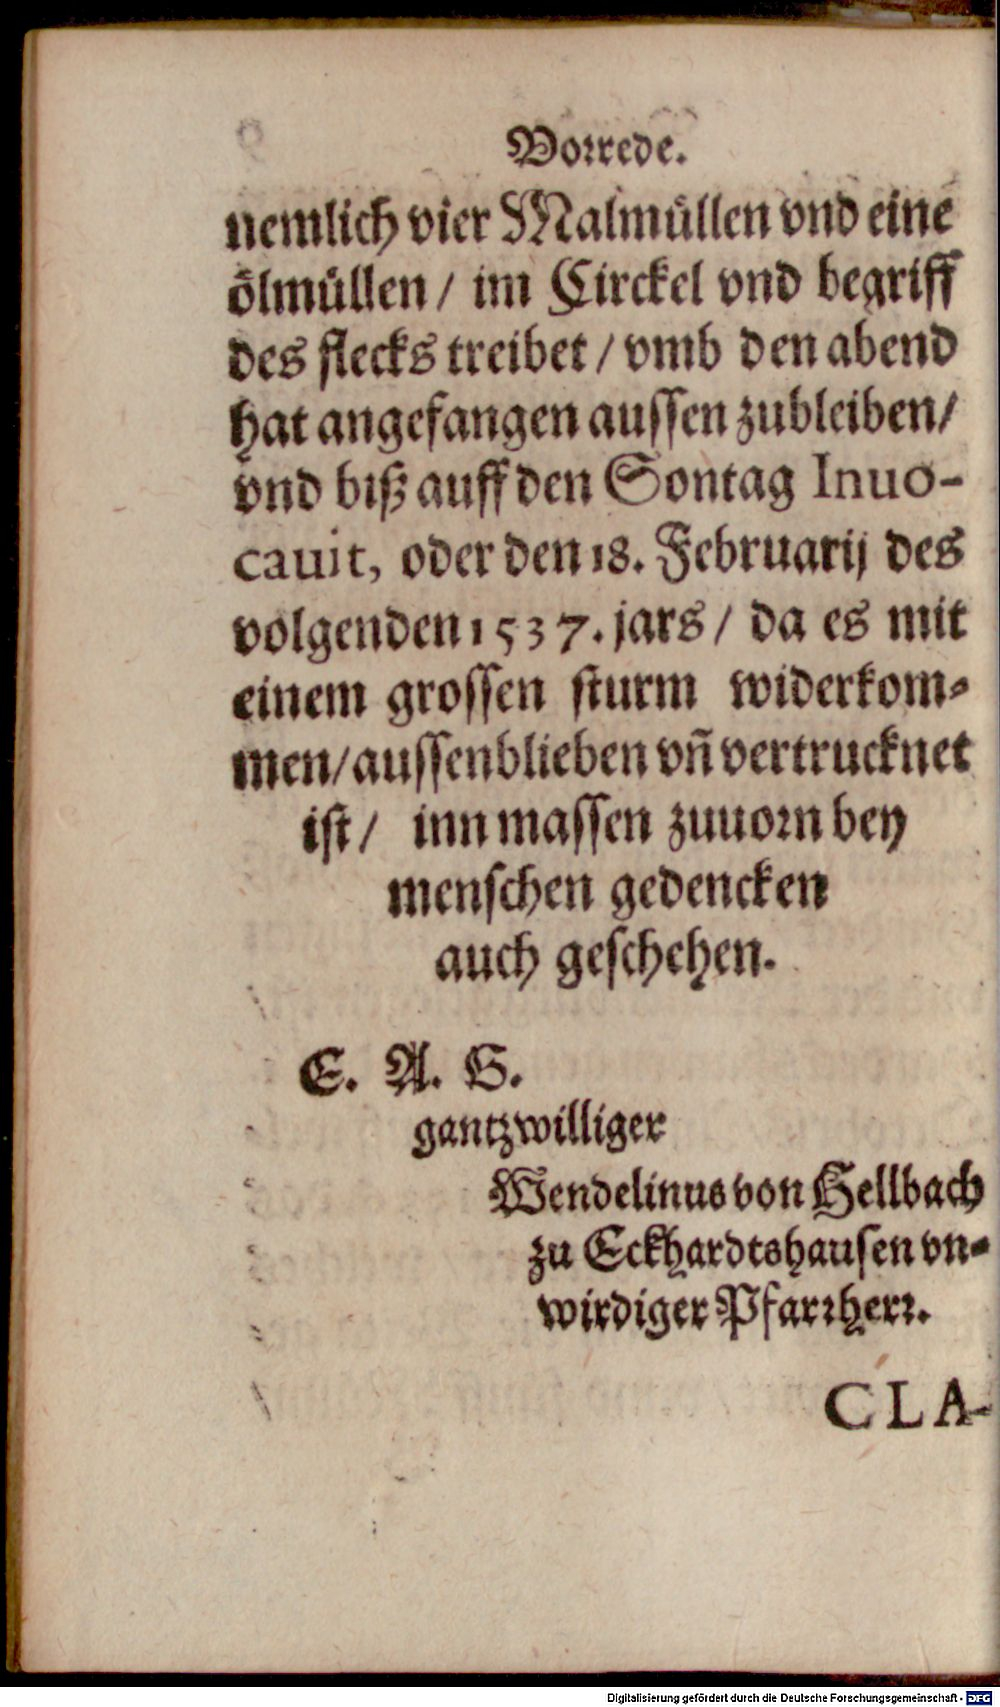 Vorrede.
nemlich vier Malmüllen vnd eine
ölmüllen / im Circkel vnd begriff
des flecks treibet / vmb den abend
hat angefangen aussen zubleiben /
vnd biß auff den Sontag Inuo-
cauit, oder den 18. Februarij des
volgenden 1537. jars / da es mit
einem grossen sturm widerkom-
men / aussenblieben vñ vertrucknet
ist / inn massen zuuorn bey
menschen gedencken
auch geschehen.
E. A. G.
gantzwilliger
Wendelinus von Hellbach
zu Eckhardtshausen vn-
wirdiger Pfarrherr.
CLA-
Digitalisierung gefördert durch die Deutsche Forschungsgemeinschaft - DFG